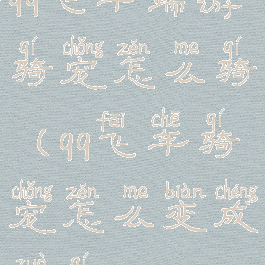 qq
qí chǒng zěn me qí
骑宠怎么骑
fēi chē qí
(qq飞车骑
chǒng zěn me biàn chéng
宠怎么变成
zuò qí